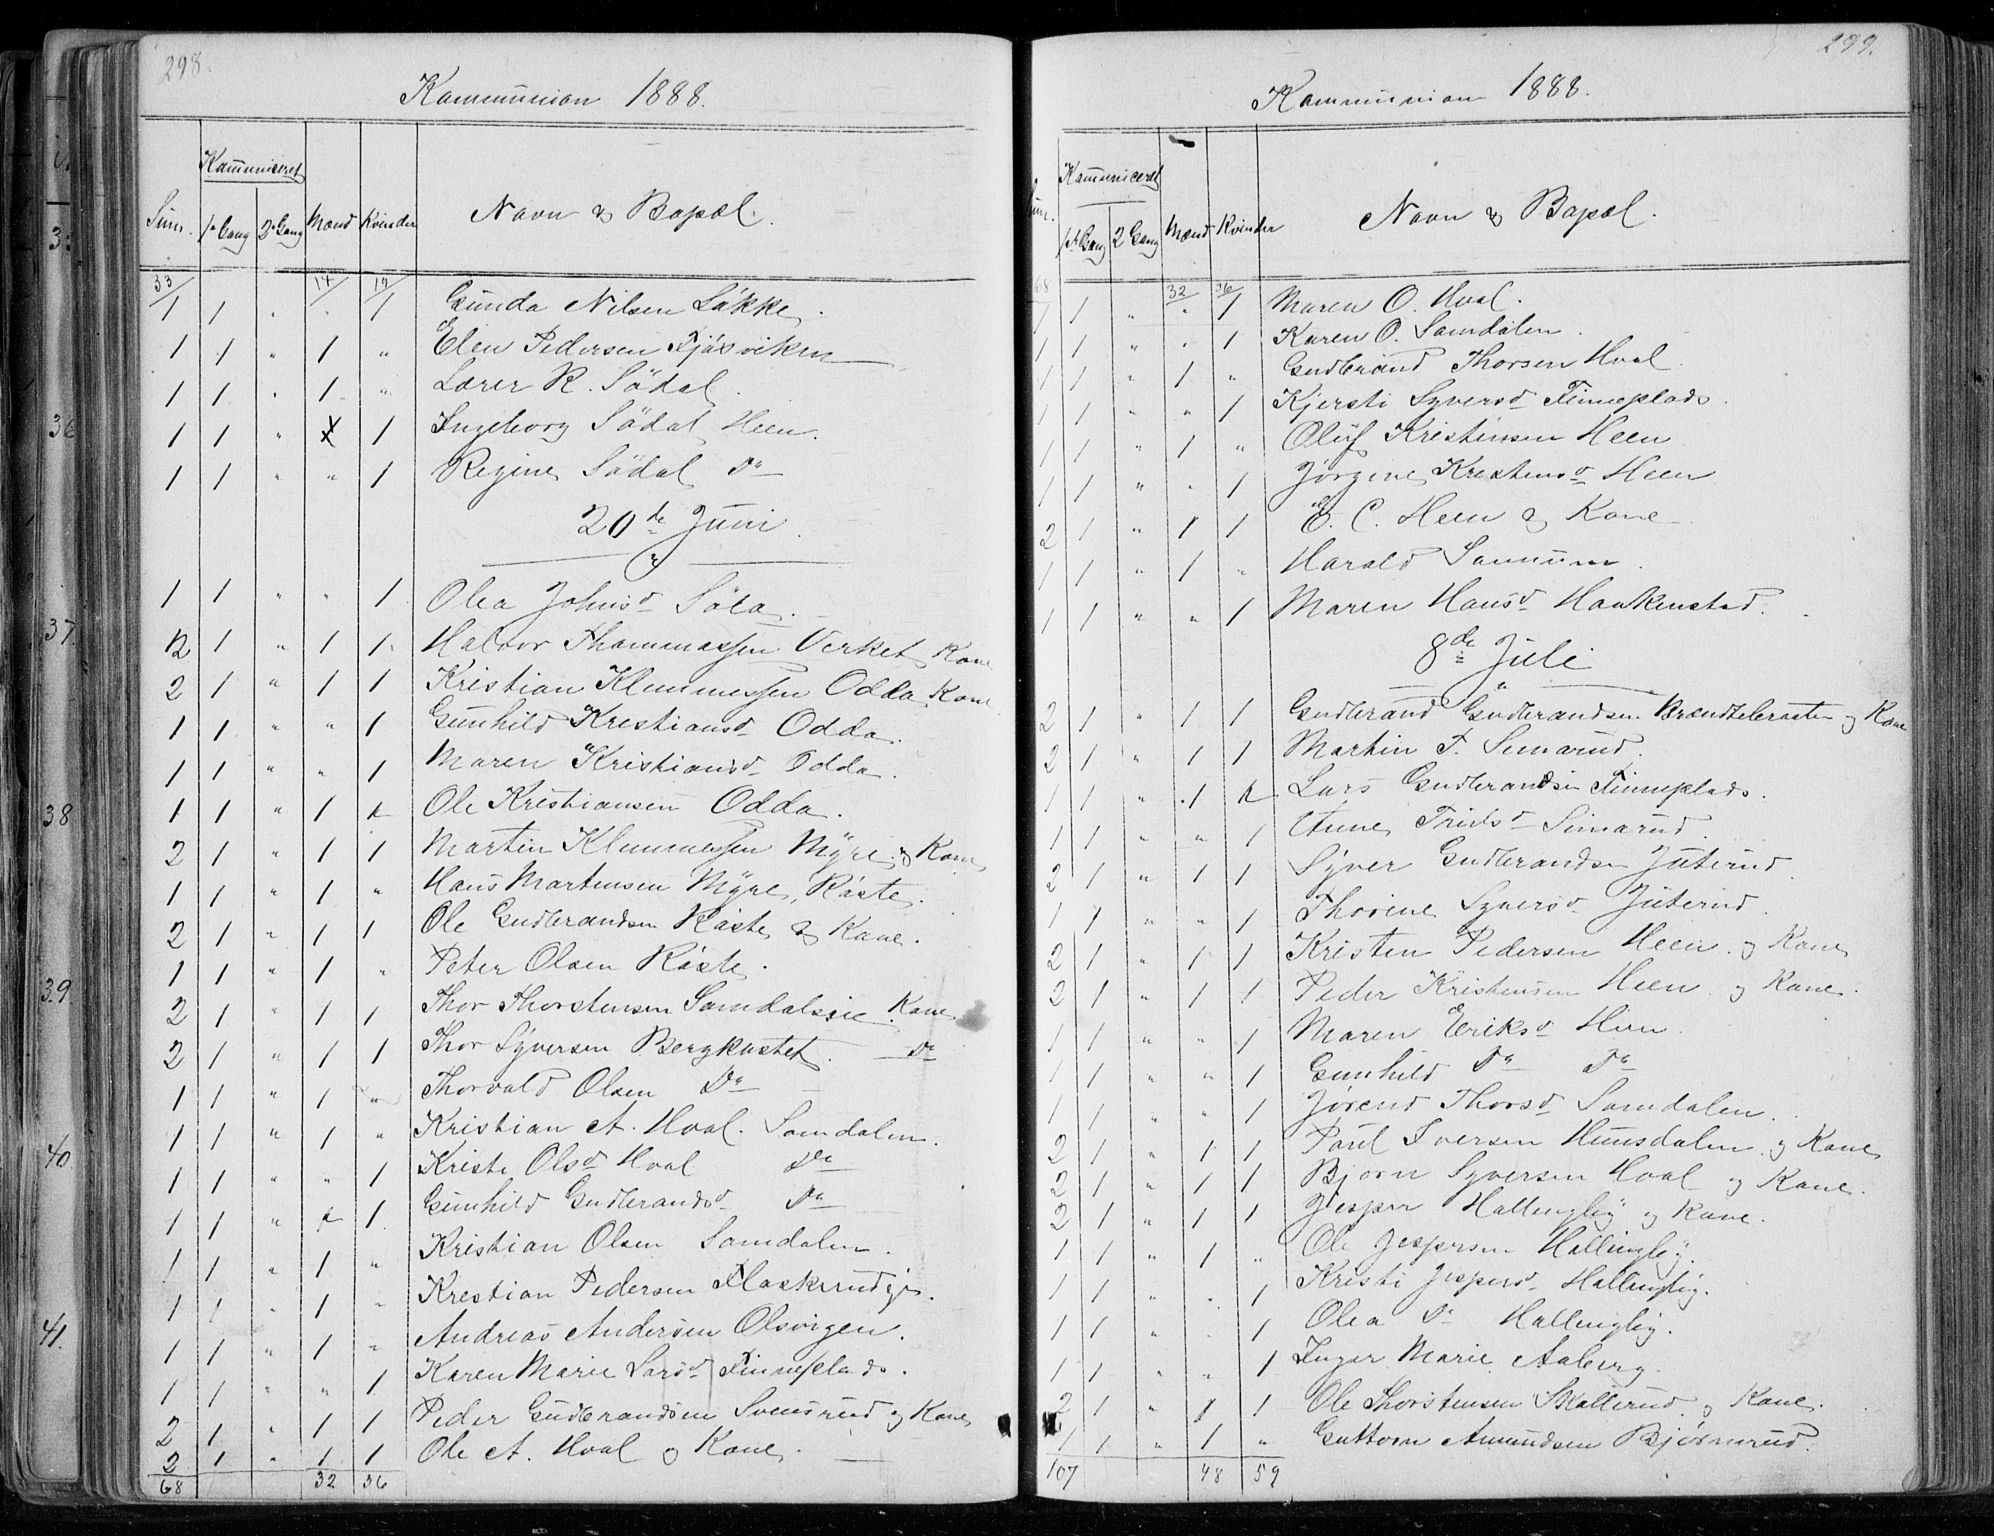 298.
Kommunion 1888.
Sum. Kommuniceret 1ste Gang 2den Gang Mænd Kvinder Navn & Bopæl.
33 14 19
1 1 " " 1 Gunda Nilsen Løkke.
1 1 " 1 " Elen Pedersen Fjøsviken
1 1 " 1 " Lærer R. Sødal.
1 1 " 1 Ingeborg Sødal Heen.
1 1 " " 1 Regine Sødal Do
20de Juni.
1 1 " " 1 Olea Johnsd Søta.
2 1 " 1 1 Halvor Thommassen Verket Kone
2 1 " 1 1 Kristian Klemmessen Odda Kone
1 1 " " 1 Gunhild Kristiansd Odda.
1 1 " " 1 Maren Kristiansd Odda.
1 1 " 1 Ole Kristiansen Odda.
2 1 " 1 1 Martin Klemmessen Myre & Kone
1 1 " 1 " Hans Martensen Myre, Røste.
2 1 " 1 1 Ole Gudbrandsen Røste & Kone.
1 1 " 1 " Peter Olsen Røste.
2 1 " 1 1 Thor Thorstensen Samdalseie. Kone
2 1 " 1 1 Thor Syversen Bergkastet. Do
1 1 " 1 " Thorvald Olsen Do
1 1 " 1 " Kristian A. Hval. Samdalen.
1 1 " " 1 Kristi Olsd Hval Do
1 1 " 1 Gunhild Gudbrandsd Do
1 1 " 1 " Kristian Olsen Samdalen.
1 1 " 1 " Krestian Pedersen Flaskerudeje.
1 1 " 1 " Andreas Andersen Olsvigen.
1 1 " " 1 Karen Marie Larsd Finneplads.
2 1 " 1 1 Peder Gudbrandsen Svensrud og Kone
2 1 " 1 1 Ole A. Hval og Kone.
68 32 36
299.
Kommunion 1888.
Sum. Kommuniceret 1ste Gang 2 Gang Mænd Kvinder Navn & Bopæl.
68 32 36
1 1 " " 1 Maren O. Hval.
1 1 " " 1 Karen O. Samdalen.
1 1 " 1 " Gudbrand Thorsen Hval.
1 1 " " 1 Kjersti Syversd Finneplads.
1 1 " 1 " Oluf Kristensen Heen
1 1 " " 1 Jørgine Kristensd Heen
2 1 " 1 1 E. C. Heen & Kone
1 1 " 1 " Harald Sannum.
1 1 " " 1 Maren Hansd Haakenstad.
8de Juli
2 1 " 1 1 Gudbrand Gudbrandsen Brændtebraaten og Kone
2 1 " 1 1 Martin T. Simarud.
1 1 " 1 Lars Gudbrandsen Finneplads.
1 1 " " 1 Anne Simarud.
2 1 " 1 1 Syver Gudbrandsen Juterud.
1 1 " " 1 Thorine Syversd Juterud.
2 1 " 1 1 Kristen Pedersen Heen og Kone
2 1 " 1 1 Peder Kristensen Heen og Kone.
1 1 " " 1 Maren Eriksd Heen.
1 1 " " 1 Gunhild Do Do
1 1 " " 1 Jørend Thorsd Samdalen.
2 1 " 1 1 Paul Iversen Hunsdalen og Kone
2 1 " 1 1 Bjørn Syversen Hval og Kone.
2 1 " 1 1 Jesper Hallinglij og Kone.
1 1 " 1 " Ole Jespersen Hallinglij.
1 1 " " 1 Kristi Jespersd Hallinglij.
1 1 " " 1 Olea Do Hallinglij.
1 1 " " 1 Inger Marie Aaberg.
2 1 " 1 1 Ole Thorstensen Skallerud og Kone.
1 1 " 1 " Guttorm Amundsen Bjørnerud.
107 48 59
36
37.
38
39.
40.
41.